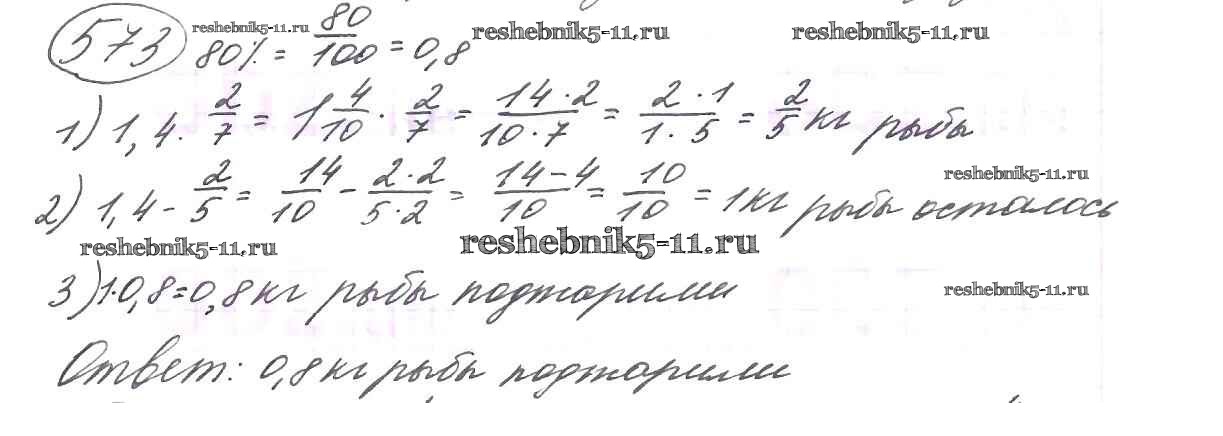 573 reshebnik5-11.ru reshebnik5-11.ru reshebnik5-11.ru
80% = 80/100 = 0,8
1) 1,4 · 2/7 = 1 4/10 · 2/7 = 14·2/10·7 = 2·1/1·5 = 2/5 кг рыбы
reshebnik5-11.ru
2) 1,4 - 2/5 = 14/10 - 2·2/5·2 = 14-4/10 = 10/10 = 1кг рыбы осталось
reshebnik5-11.ru reshebnik5-11.ru
3) 1·0,8=0,8кг рыбы поджарили reshebnik5-11.ru
Ответ: 0,8кг рыбы поджарили